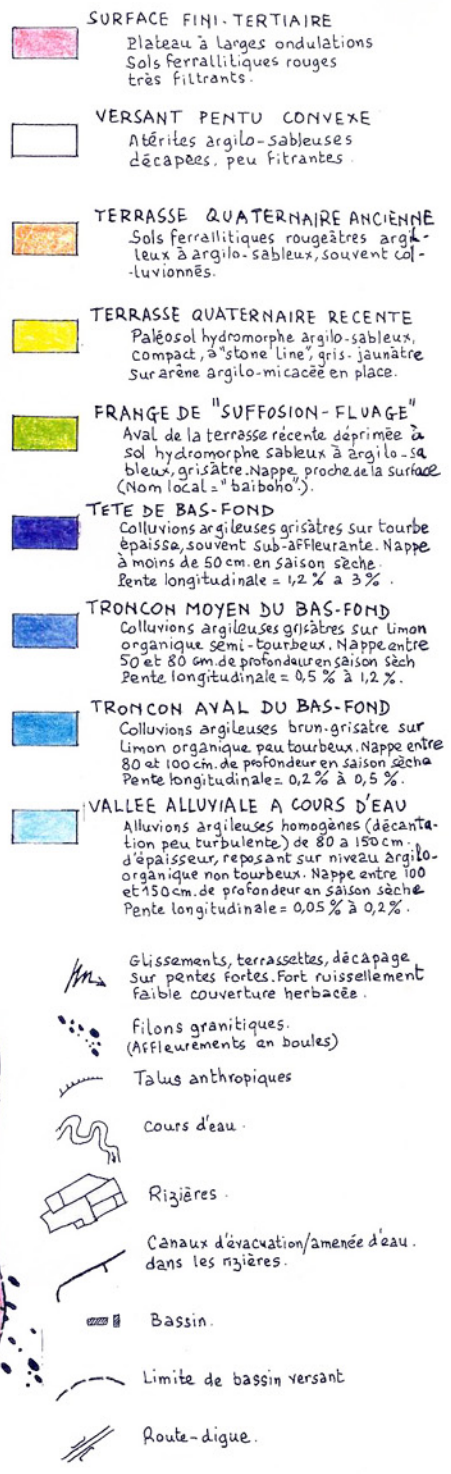 SURFACE FINI-TERTIAIRE
Plateau à larges ondulations
Sols ferrallitiques rouges
très filtrants.
VERSANT PENTU CONVEXE
Atérites argilo-sableuses
décapées, peu fitrantes.
TERRASSE QUATERNAIRE ANCIÈNNE
Sols ferrallitiques rougeâtres argi-
leux à argilo-sableux, souvent col-
-luvionnés.
TERRASSE QUATERNAIRE RECENTE
Paléosol hydromorphe argilo-sableux,
compact, à "stone line", gris-jaunâtre
sur arène argilo-micacée en place.
FRANGE DE "SUFFOSION-FLUAGE"
Aval de la terrasse récente déprimée à
sol hydromorphe sableux à argilo-sa
bleux, grisâtre. Nappe proche de la surface
(Nom local = "baiboho".).
TETE DE BAS-FOND
Colluvions argileuses grisâtres sur tourbe
épaisse, souvent sub-affleurante. Nappe
à moins de 50 cm. en saison sèche.
Pente longitudinale = 1,2 % a 3 % .
TRONCON MOYEN DU BAS-FOND
Colluvions argileuses grisâtres sur limon
organique semi-tourbeux. Nappe entre
50 et 80 cm. de profondeur en saison sèch
Pente longitudinale = 0,5 % à 1,2 %.
TRONCON AVAL DU BAS-FOND
Colluvions argileuses brun-grisatre sur
limon organique peu tourbeux. Nappe entre
80 et 100 cm. de profondeur en saison sèche
Pente longitudinale = 0,2 % à 0,5 %.
VALLEE ALLUVIALE A COURS D'EAU
Alluvions argileuses homogènes (décanta-
tion peu turbulente) de 80 a 150 cm.
d'épaisseur, reposant sur niveau argilo-
organique non tourbeux. Nappe entre 100
et 150 cm. de profondeur en saison sèche
Pente longitudinale = 0,05 % à 0,2% .
Glissements, terrassettes, décapage
sur pentes fortes. Fort ruissellement
faible couverture herbacée .
Filons granitiques.
(Affleurements en boules)
Talus anthropiques
Cours d'eau .
Rizières .
Canaux d'évacuation/amenée d'eau.
dans les rizières.
Bassin.
Limite de bassin versant
Route-digue .